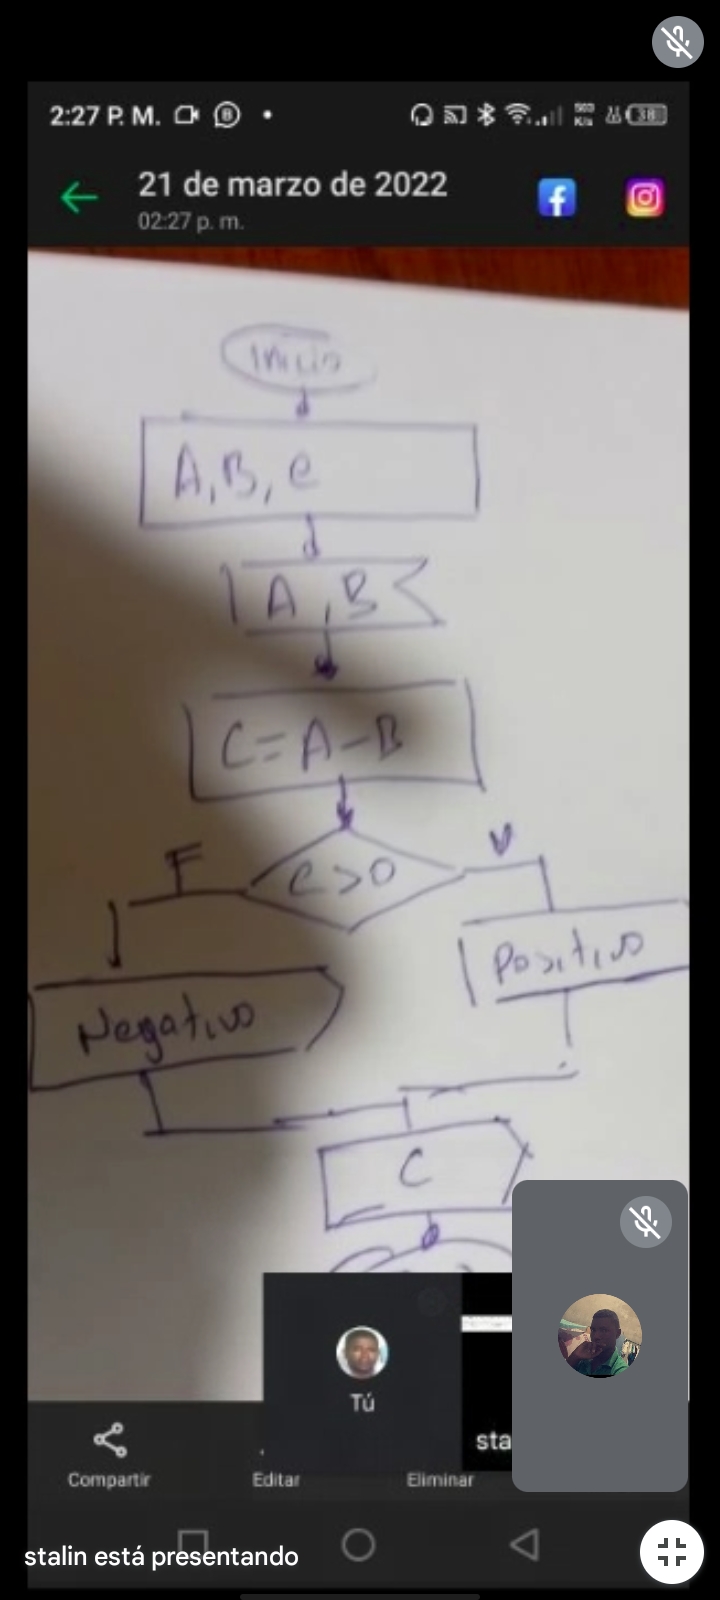 2:27 P. M.
38
21 de marzo de 2022
02:27 p. m.
Inicio
A, B, C
A, B
C = A - B
F
C > 0
V
Negativo
Positivo
C
Tú
sta
Compartir
Editar
Eliminar
stalin está presentando